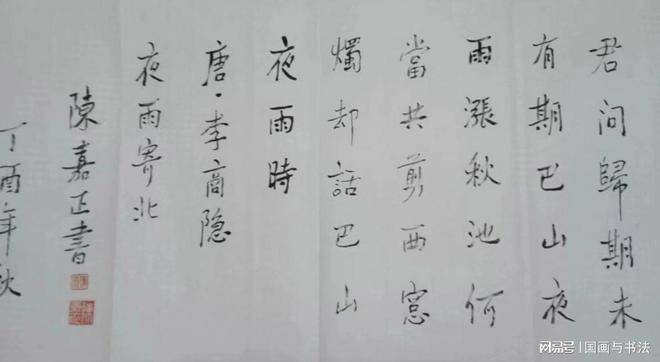 君问歸期未
有期巴山夜
雨漲秋池何
當共剪西窓
燭却話巴山
夜雨時
唐·李商隐
夜雨寄北
陳嘉正書
丁酉年秋
网易号 | 国画与书法